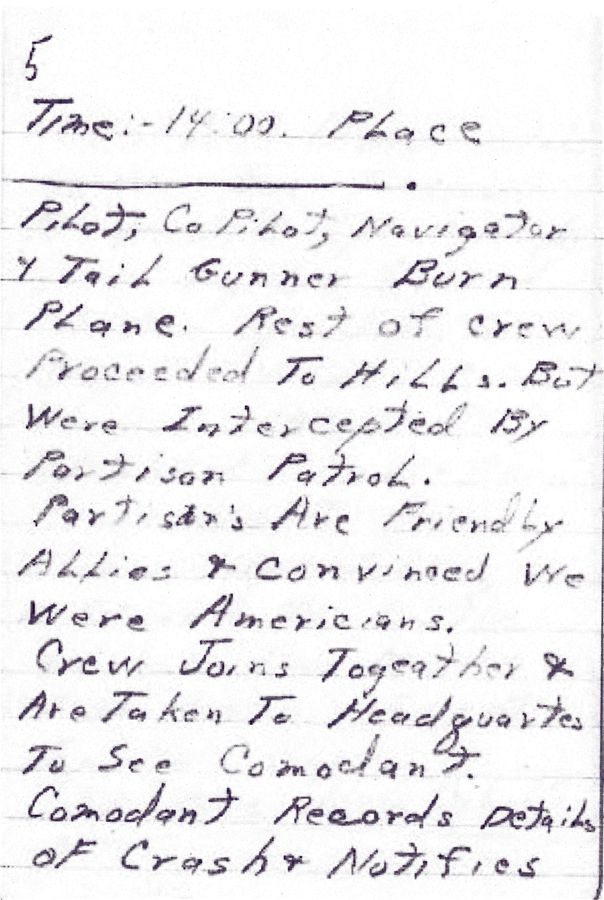 5
Time:- 14:00. Place
.
Pilot, Co Pilot, Navigator
& Tail Gunner Burn
Plane. Rest of crew
Proceeded To Hills. But
Were Intercepted By
Partison Patrol.
Partison's Are Friendly
Allies & Convinced We
Were Americians.
Crew Joins Togeather &
Are Taken To Headquartes
To See Comodant.
Comodant Records Details
of Crash & Notifies